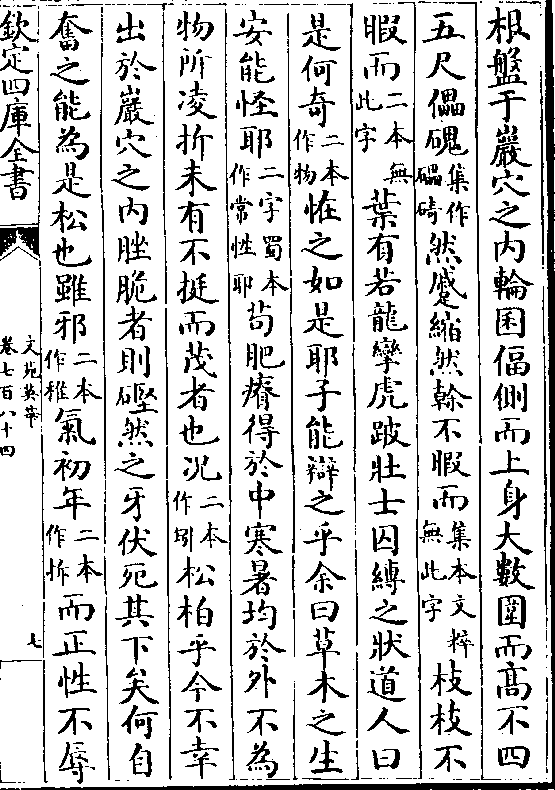 根盤于巖穴之内輪囷偪側而上身大數圍而髙不四
五尺儡磈集作礧碕然蹙縮然榦不暇而集本文粹無此字枝枝不
暇而二本無此字葉有若龍攣虎跛壯士囚縛之狀道人曰
是何奇二本作物恠之如是耶子能辯之乎余曰草木之生
安能怪耶二字蜀本作常性耶苟肥瘠得於中寒暑均於外不為
物所凌折未有不挺而茂者也况二本作矧松柏乎今不幸
出於巖穴之内脞脆者則硻然之牙伏死其下矣何自
奮之能為是松也雖邪二本作稚氣初年二本作拆而正性不辱
欽定四庫全書
文苑英華
卷七百八十四
七